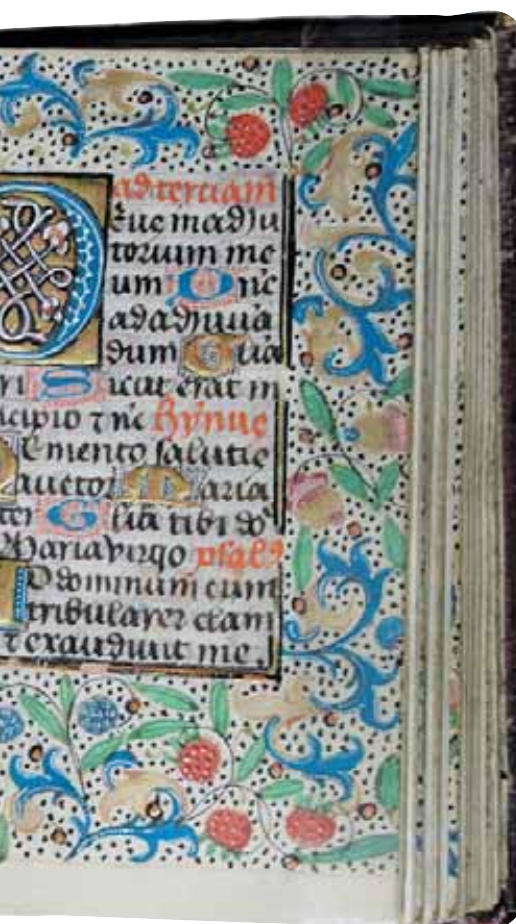 ad terciam
Eus in adiu
torium me
um Dne
ad adiuua
dum Glia
ri Sicut erat in
ncipio ⁊ nc hynus
emento salutis
auctor Maria
ter Glia tibi do
Maria virgo psal9
D dominum cum
tribularer clam
⁊ exaudiuit me.